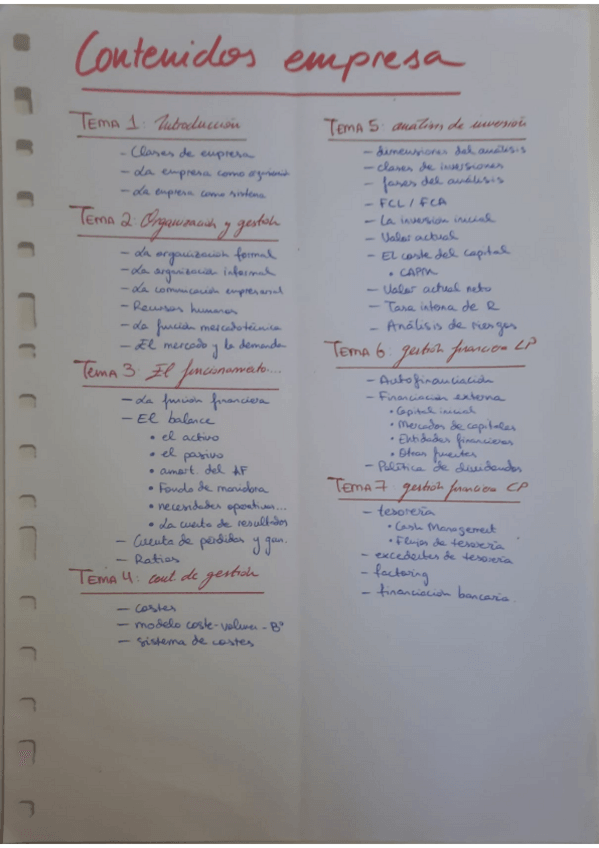 Contenidos empresa
TEMA 1: Introducción
- Clases de empresa
- La empresa como organización
- La empresa como sistema
TEMA 2: Organización y gestión
- La organización formal
- La organización informal
- La comunicación empresarial
- Recursos humanos
- La función mercadotécnica
- El mercado y la demanda
TEMA 3: El funcionamiento...
- La función financiera
- El balance
• el activo
• el pasivo
• amort. del AF
• Fondo de maniobra
• necesidades operativas...
• La cuenta de resultados
- Cuenta de pérdidas y gan.
- Ratios
TEMA 4: cont. de gestión
- costes
- modelo coste-volumen-Bº
- sistema de costes
TEMA 5: análisis de inversión
- dimensiones del análisis
- clases de inversiones
- fases del análisis
- FCL / FCA
- La inversión inicial
- Valor actual
- El coste del capital
• CAPM
- Valor actual neto
- Tasa interna de R
- Análisis de riesgos
TEMA 6: gestión financiera LP
- Autofinanciación
- Financiación externa
• Capital inicial
• Mercados de capitales
• Entidades financieras
• Otras fuentes
- Política de dividendos
TEMA 7: gestión financiera CP
- tesorería
• Cash Management
• Flujos de tesorería
- excedentes de tesorería
- factoring
- financiación bancaria.